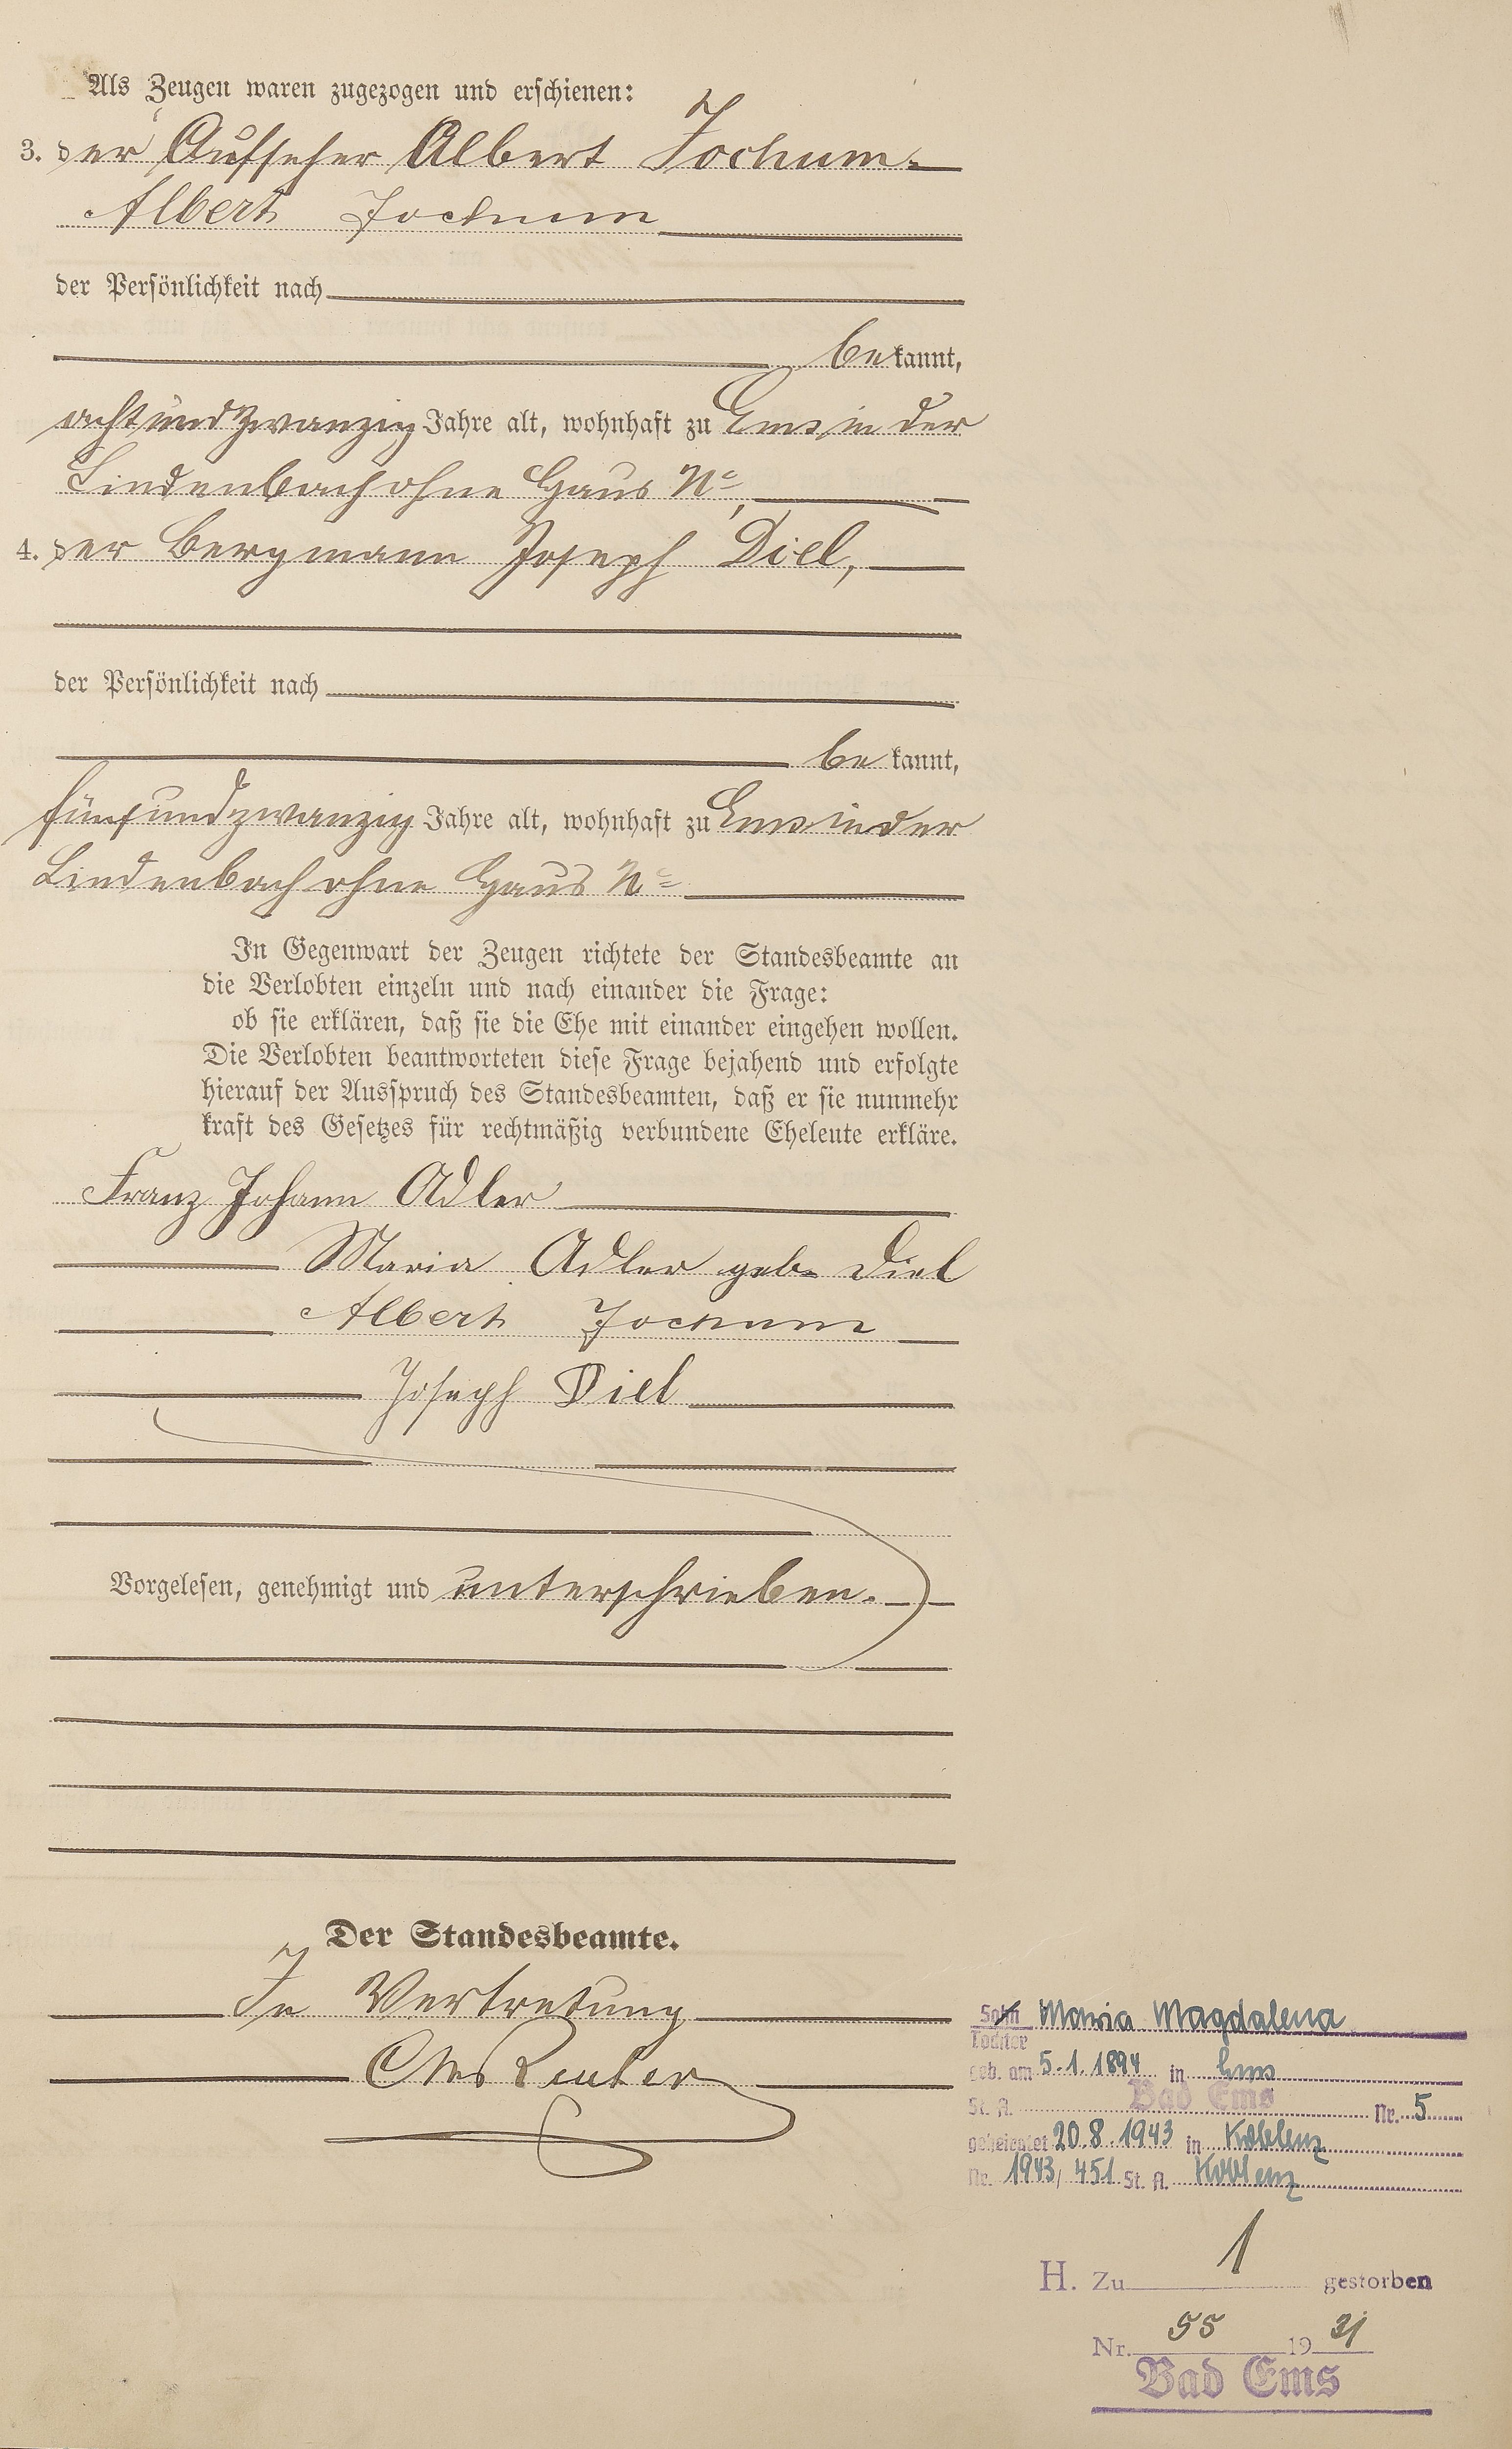 Als Zeugen waren zugezogen und erschienen:
3. der Aufseher Albert Jochum.
Albert Jochum
der Persönlichkeit nach
be kannt,
acht und zwanzig Jahre alt, wohnhaft zu Ems, in der
Lindenbach ohne Haus No,
4. der Bergmann Joseph Diel,
der Persönlichkeit nach
be kannt,
fünfundzwanzig Jahre alt, wohnhaft zu Ems in der
Lindenbach ohne Haus No
In Gegenwart der Zeugen richtete der Standesbeamte an
die Verlobten einzeln und nach einander die Frage:
ob sie erklären, daß sie die Ehe mit einander eingehen wollen.
Die Verlobten beantworteten diese Frage bejahend und erfolgte
hierauf der Ausspruch des Standesbeamten, daß er sie nunmehr
kraft des Gesetzes für rechtmäßig verbundene Eheleute erkläre.
Franz Johann Adler
Maria Adler geb. Diel
Albert Jochum
Joseph Diel
Vorgelesen, genehmigt und unterschrieben.
Der Standesbeamte.
In Vertretung
Reuter
Sohn Maria Magdalena
Tochter
geb. am 5.1.1894 in Ems
St. A. Bad Ems Nr. 5
geheiratet 20.8.1943 in Koblenz
Nr. 1943/451 St. A. Koblenz
H. Zu 1 gestorben
Nr. 55 19 31
Bad Ems